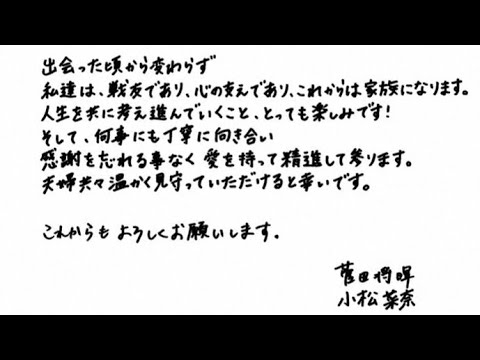 出会った頃から変わらず
私達は、戦友であり、心の支えであり、これからは家族になります。
人生を共に考え進んでいくこと、とっても楽しみです!
そして、何事にも丁寧に向き合い
感謝を忘れる事なく愛を持って精進して参ります。
夫婦共々温かく見守っていただけると幸いです。
これからもよろしくお願いします。
菅田将暉
小松菜奈